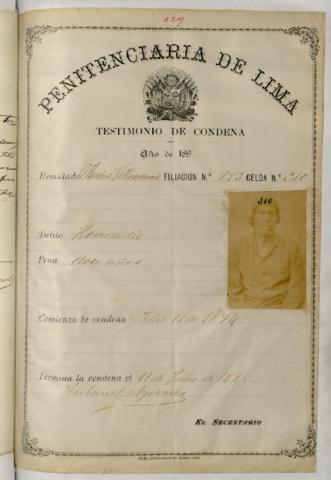 029
PENITENCIARIA DE LIMA
TESTIMONIO DE CONDENA
Año de 189
Rematado FILIACION N.º 985 CELDA N.º 310
310
Delito Homicidio
Pena doce años
Comienza la condena Julio 11 de 1874
Termina la condena el 11 de Julio de 1886
Tribunal
EL SECRETARIO